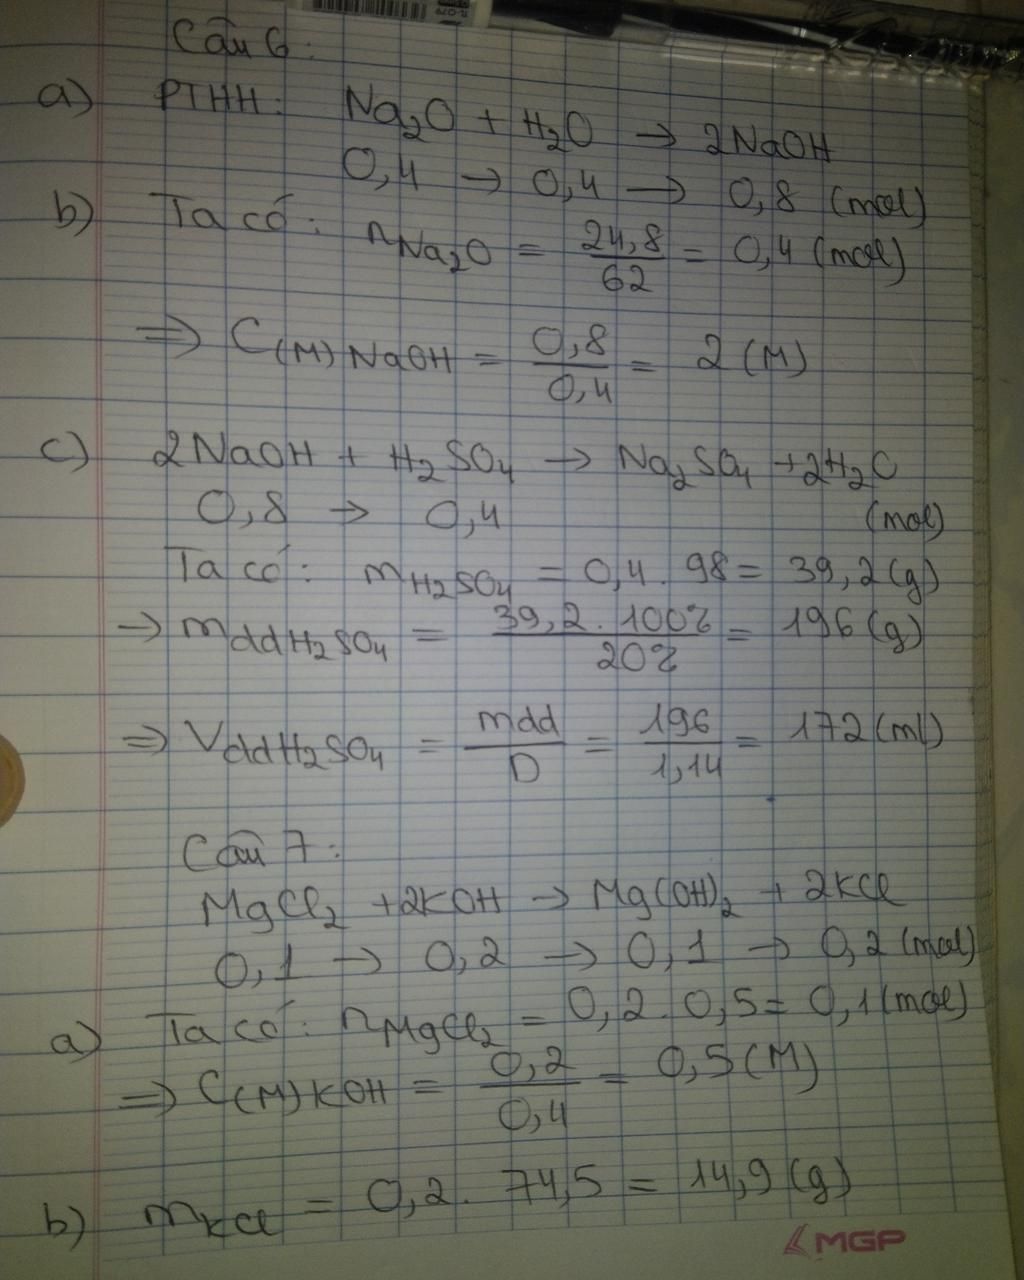 Câu 6:
a) PTHH: Na₂O + H₂O → 2NaOH
0,4 → 0,4 → 0,8 (mol)
b) Ta có: nNa₂O = 24,8/62 = 0,4 (mol)
⇒ C(M) NaOH = 0,8/0,4 = 2 (M)
c) 2NaOH + H₂SO₄ → Na₂SO₄ + 2H₂O
0,8 → 0,4 (mol)
Ta có: mH₂SO₄ = 0,4 . 98 = 39,2 (g)
→ mddH₂SO₄ = 39,2 . 100%/20% = 196 (g)
⇒ VddH₂SO₄ = mdd/D = 196/1,14 = 172 (ml)
Câu 7:
MgCl₂ + 2KOH → Mg(OH)₂ + 2KCl
0,1 → 0,2 → 0,1 → 0,2 (mol)
a) Ta có: nMgCl₂ = 0,2 . 0,5 = 0,1 (mol)
⇒ C(M) KOH = 0,2/0,4 = 0,5 (M)
b) mKCl = 0,2 . 74,5 = 14,9 (g)
MGP